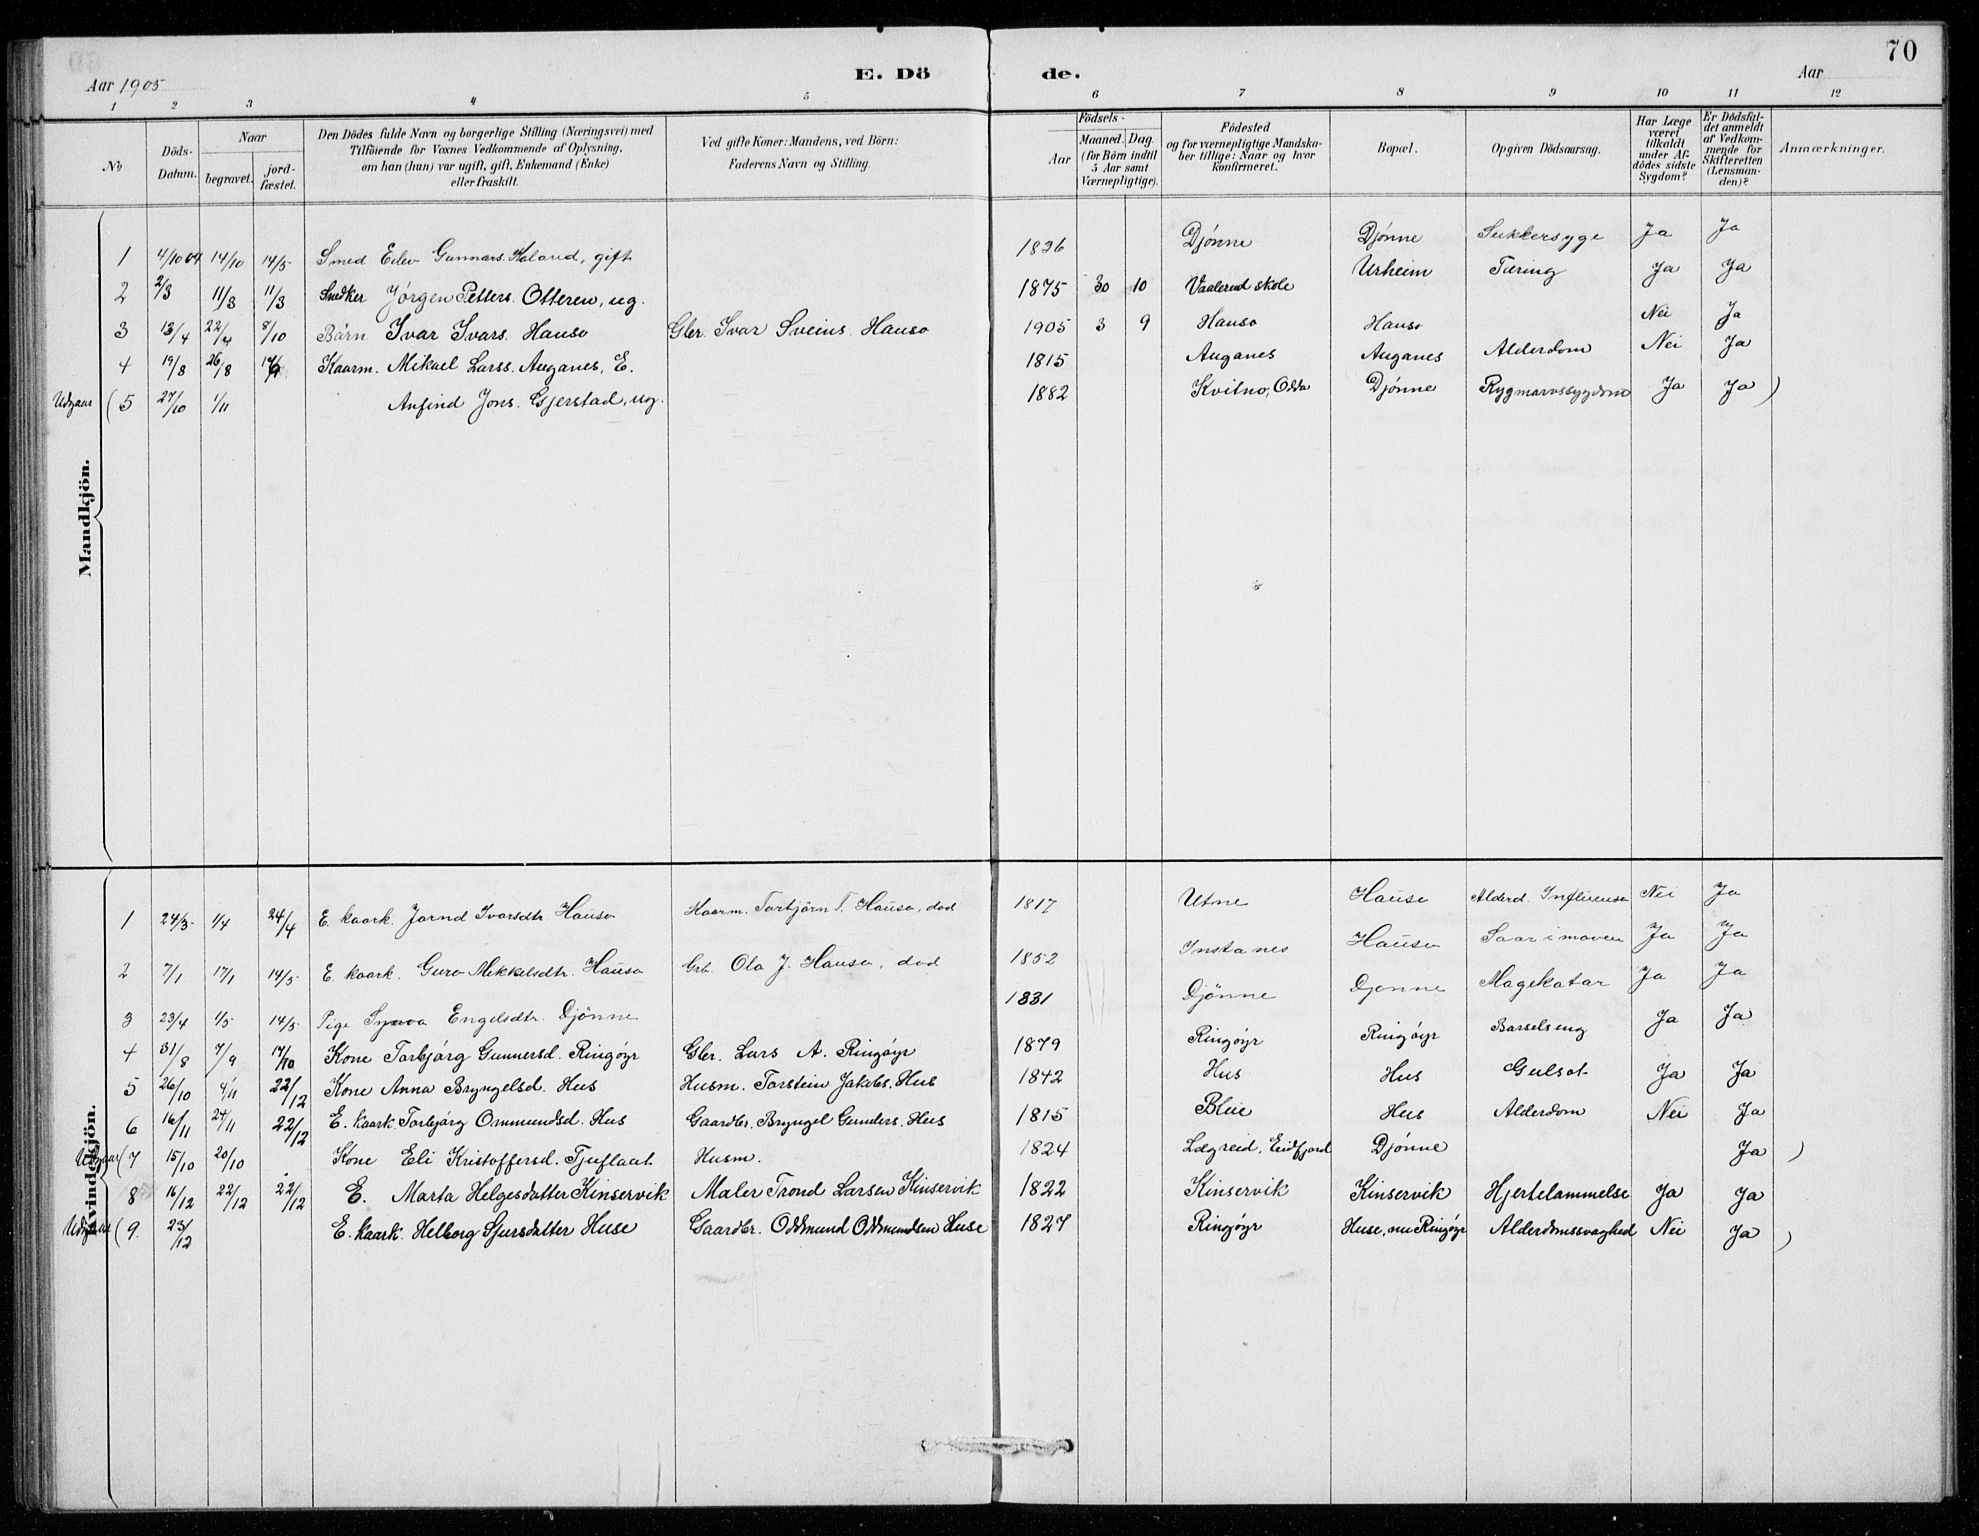 70
Aar 1905
E. Dö
de.
Aar
1 2 3 4 5 6 7 8 9 10 11 12
No
Döds-Datum.
Naar
begravet.
jord-fæstet.
Den Dödes fulde Navn og borgerlige Stilling (Næringsvei) med
Tilföiende for Voxnes Vedkommende af Oplysning,
om han (hun) var ugift, gift, Enkemand (Enke)
eller fraskilt.
Ved gifte Koner: Mandens, ved Börn:
Faderens Navn og Stilling.
Födsels-
Aar
Maaned. Dag.
(for Börn indtil
5 Aar samt
Værnepligtige).
Födested
og for værnepligtige Mandska-
ber tillige: Naar og hvor
konfirmeret.
Bopæl.
Opgiven Dödsaarsag.
Har Læge
været
tilkaldt
under Af-
dödes sidste
Sygdom?
Er Dödsfal-
det anmeldt
af Vedkom-
mende for
Skifteretten
(Lensman-
den)?
Anmærkninger.
Mandkjön.
1 4/10 04 14/10 14/5 Smed Eilev Gunnars. Haland, gift 1836 Djónne Djónne Sukkersyge Ja Ja
2 2/3 11/3 11/3 Snedker Jórgen Petters. Otteren, ug. 1875 30 10 Vaalerud skole Urheim Tæring Ja Ja
3 13/4 22/4 8/10 Bárn Ivar Ivars. Hauso Gbr. Ivar Sveins. Hauso 1905 3 9 Hauso Hauso Nei Ja
4 19/8 26/8 Kaarm. Mikael Larss. Auganes, E. 1815 Auganes Auganes Alderdom Nei Ja
Udgaar (5 27/10 1/11 Anfind Jons. Gjerstad, ug. 1882 Kvitno, Odda Djónne Rygmarvssygdom Ja Ja )
Kvindekjön.
1 24/3 1/4 24/4 E. kaark. Jornd Ivarsdtr. Hauso Kaarm. Torbjörn T. Hauso, død 1817 Utne Hauso Alderd. Influensa Nei Ja
2 7/1 17/1 14/5 E. kaark. Guro Mikkelsdtr. Hauso Grb. Ola J. Hauso, død 1852 Instanes Hauso Saar i maven Ja Ja
3 23/4 1/5 14/5 Pige Synva Engelsdtr. Djönne 1831 Djönne Djönne Magekatar Ja Ja
4 31/8 7/9 17/10 Kone Torbjórg Gunnersd. Ringóyr Gbr. Lars A. Ringóyr 1879 Ringóyr Ringóyr Barselseng Ja Ja
5 26/10 4/11 22/12 Kone Anna Bryngelsd. Hus Husm. Torstein Jakobs. Hus 1842 Hus Hus Gulsot Ja Ja
6 16/11 24/11 22/12 E. kaark. Torbjórg Ommundsd. Hus Gaardbr. Bryngel Gunders. Hus 1815 Bleie Hus Alderdom Nei Ja
Udgaar (7 15/10 20/10 Kone Eli Kristoffersd. Tjuflaat Husm. 1824 Lægreid, Eidfjord Djónne Ja )
8 16/12 22/12 22/12 E. Marta Helgesdatter Kinservik Maler Trond Larsen Kinservik 1822 Kinservik Kinservik Hjertelammelse Ja Ja
Udgaar (9. 23/12 E. kaark. Helborg Sjursdatter Huse Gaardbr. Oddmund Oddmundsen Huse 1827 Ringóyr Huse, nu Ringóyr Alderdomssvaghed Nei Ja )